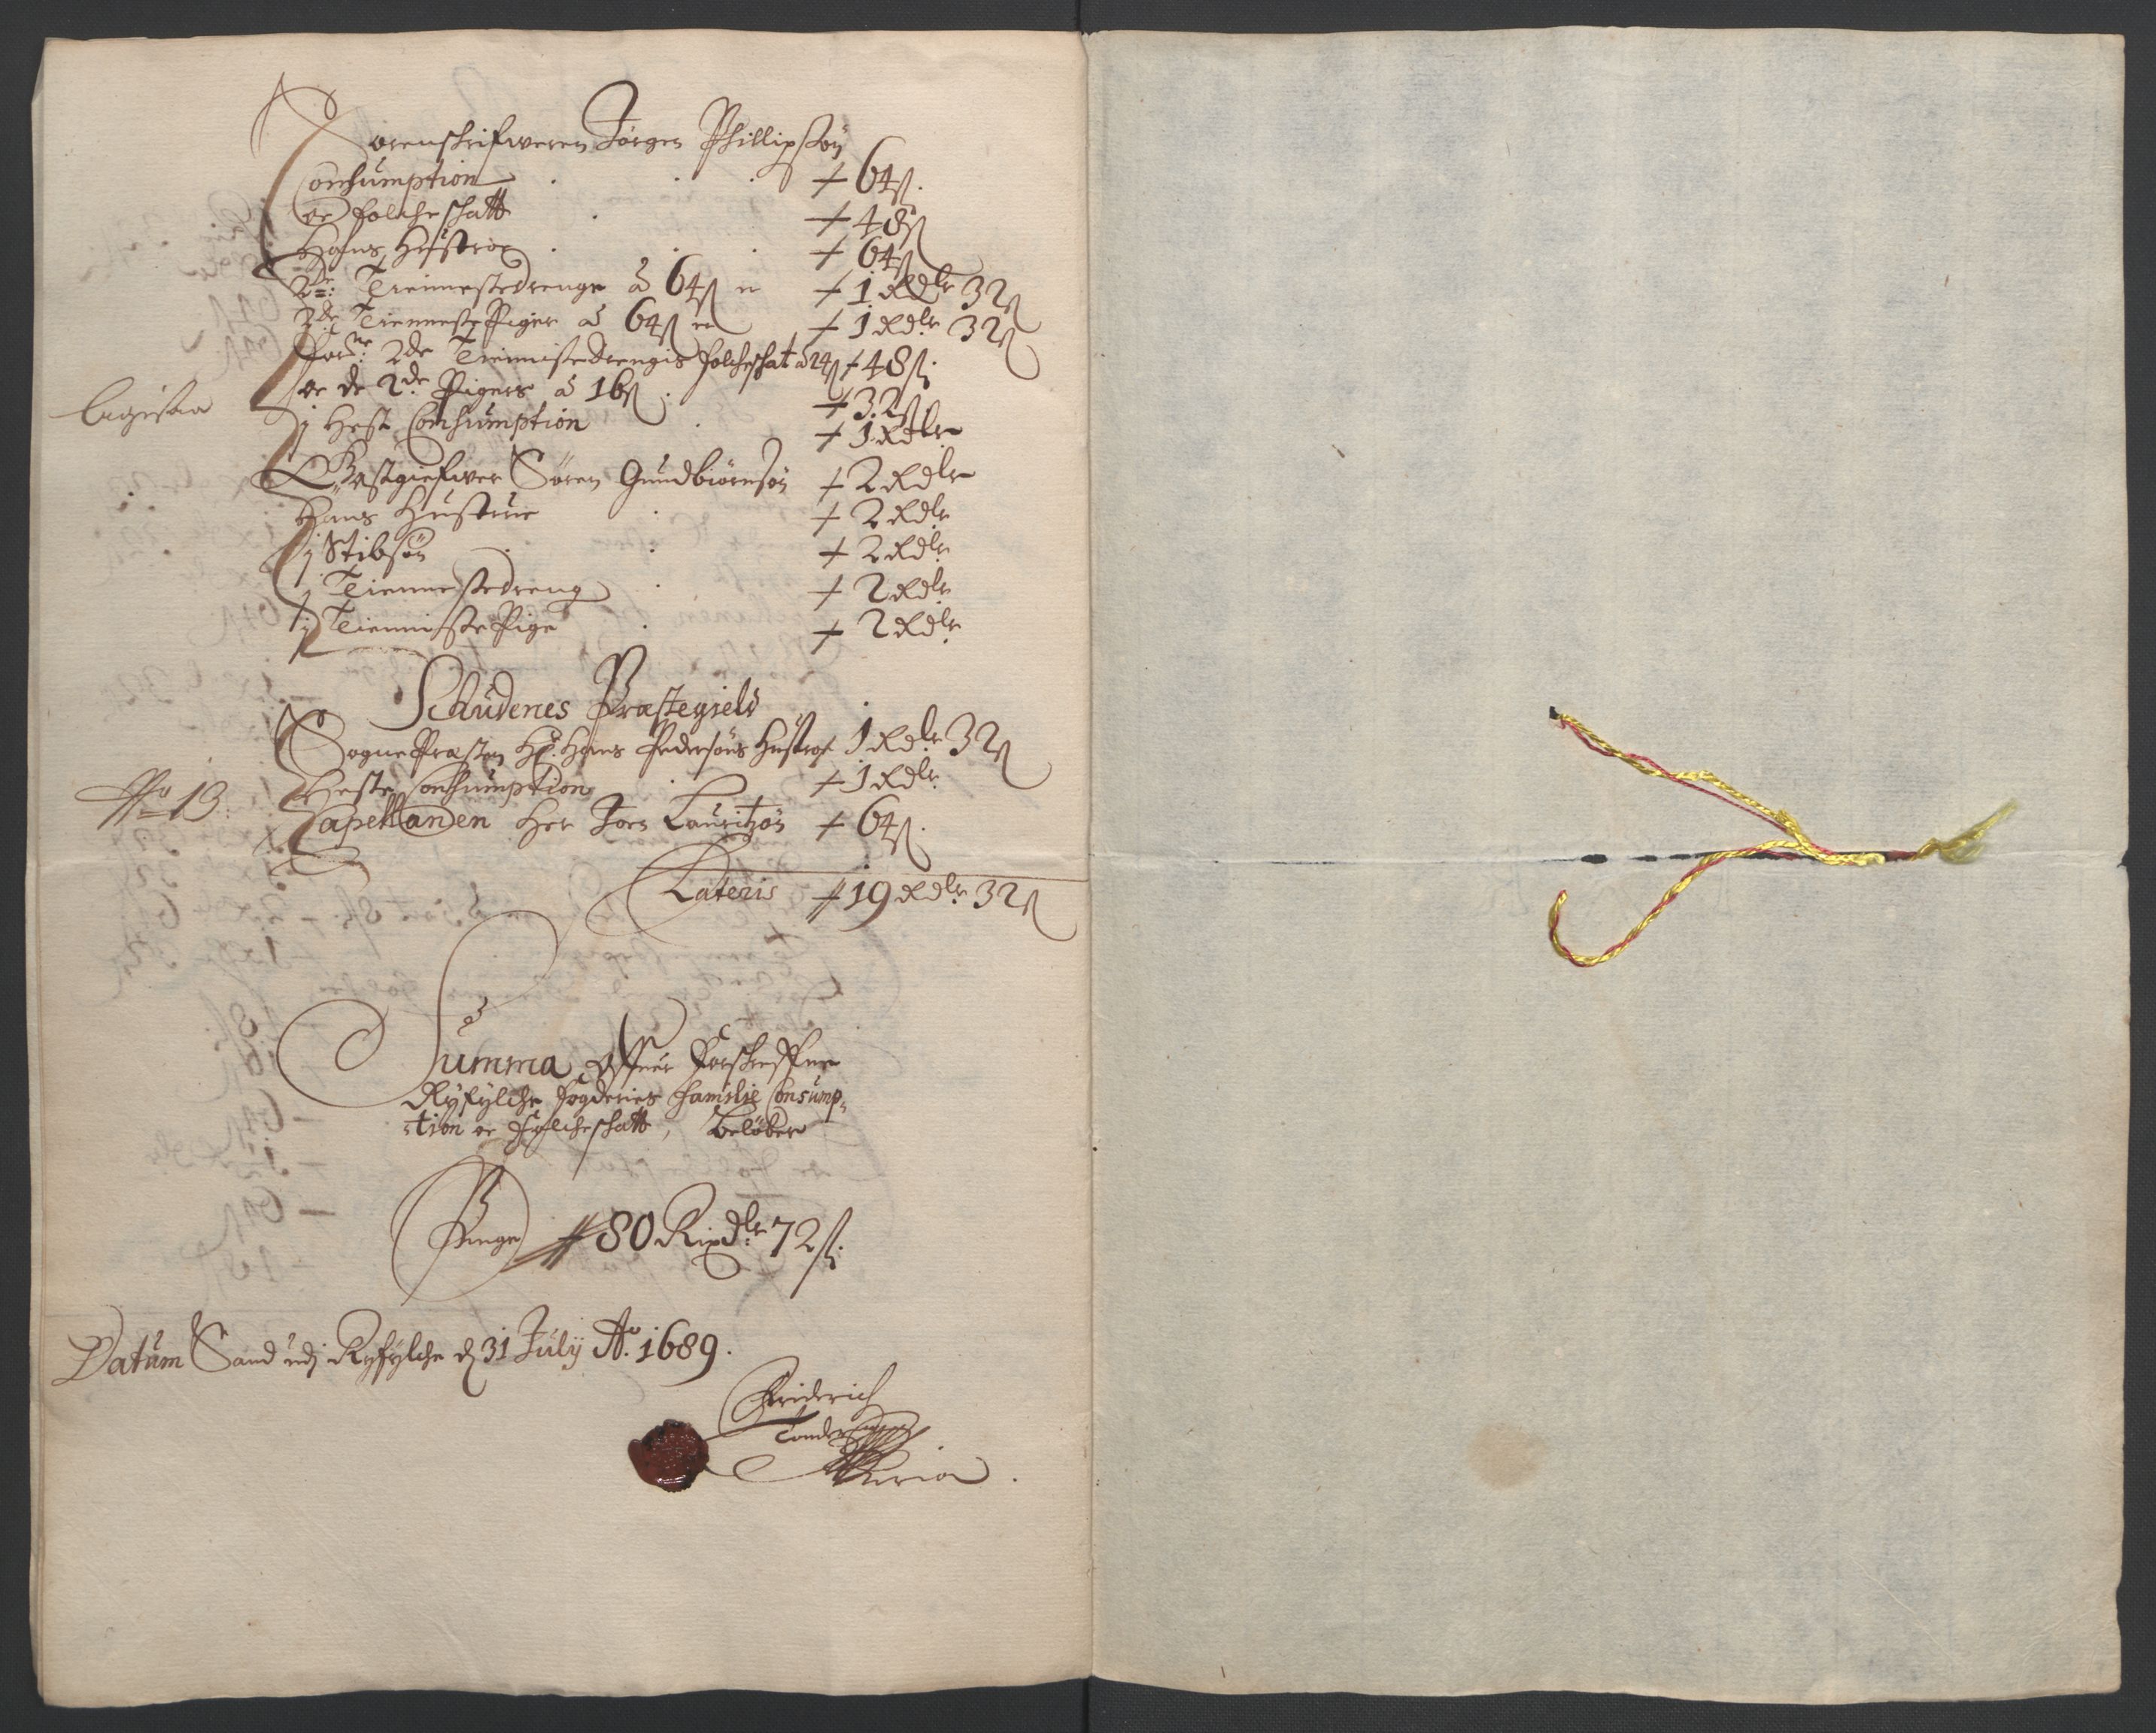 Sorenschrifweren Jørgen Phillipsøn
Consumption . . . 64 ß.
oc Folcheschatt . 48 ß
Hans Hustroe . . . 64 ß
2de: Tiennestedrenge à 64 ß er 1 Rdlr 32 ß
2de Tienneste Piger à 64 ß er 1 Rdlr 32 ß
Forne: 2de Tiennistedrengis Folcheschat à 24 ß 48 ß
oc de 2de Pigers à 16 ß . 32 ß
j Hest Consumption . 1 Rdlr
Giestgiefwer Søren Gundbiørnsøn 2 Rdlr
Hans Hustrue . 2 Rdlr
j Stibsøn . . 2 Rdlr
j Tiennestedreng . 2 Rdlr
j Tienniste Pige . 2 Rdlr
Schudenes Præstegield
Sogne Præsten Hr. Hans Pedersøns Hustroe 1 Rdlr 32 ß
No 13. Heste Consumption . 1 Rdlr
Capellanden Her Joen Lauritzøn 64 ß.
Lateris 19 Rdlr 32 ß
Summa Offuer Forschreffne
Ryfylche Fogderies Familie Consump-
tion oc Folcheschatt, Beløber
Penge 80 Rixdlr 72 ß.
Datum Sand udj Ryfylche d 31 July Ao. 1689.
Friderich
Tonder